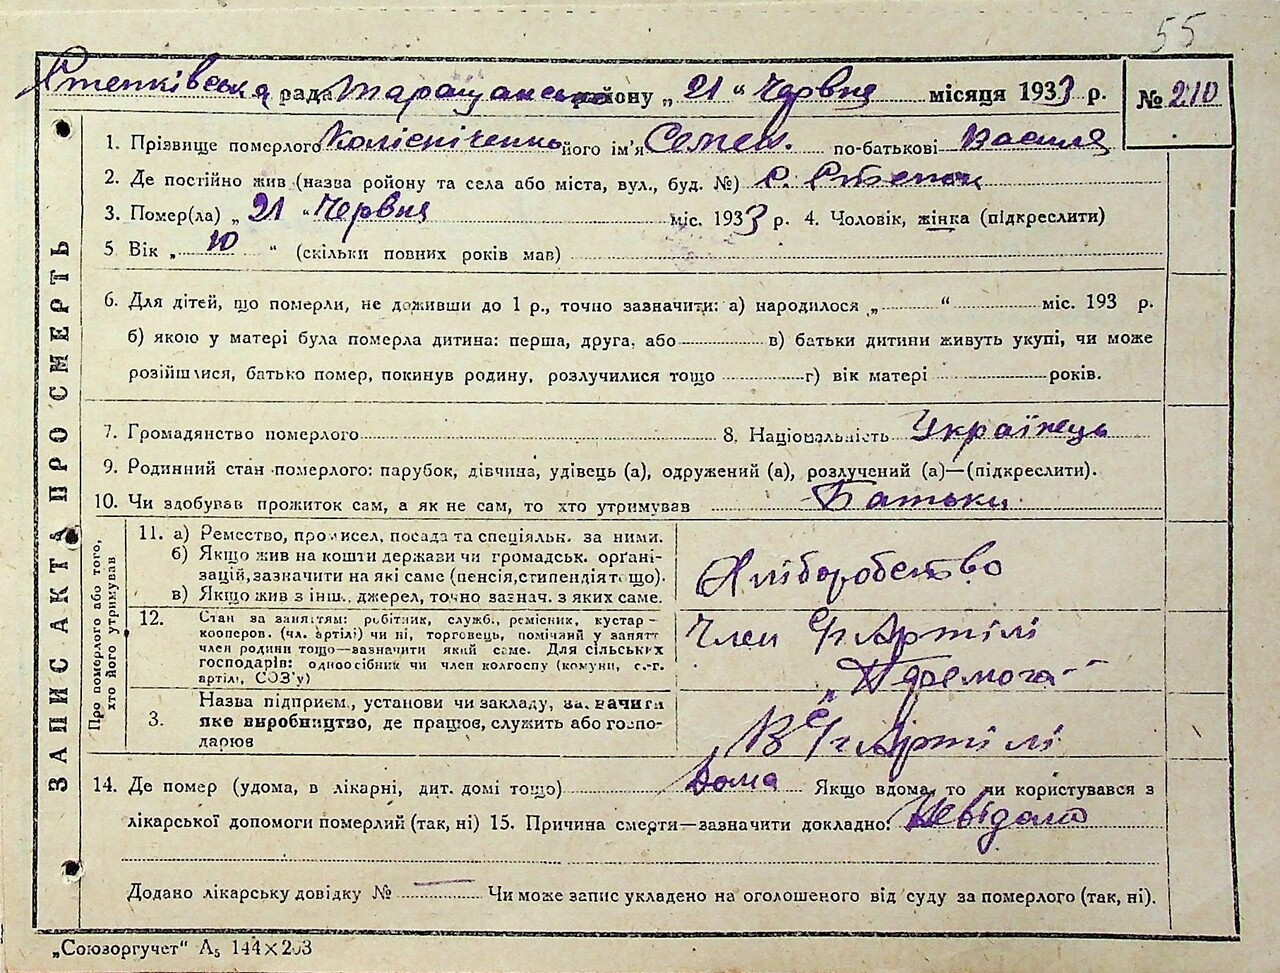 55
Степківська рада Таращанського району „21" Червня місяця 1933 р. № 210
1. Прізвище померлого Колісніченко його ім'я Семен. по-батькові Василя
2. Де постійно жив (назва ройону та села або міста, вул., буд. №) с. Степок
3. Помер(ла) „21" Червня міс. 1933 р. 4. Чоловік, жінка (підкреслити)
5 Вік „10" (скільки повних років мав)
6. Для дітей, що померли, не доживши до 1 р., точно зазначити: а) народилося „ " міс. 193 р.
б) якою у матері була померла дитина: перша, друга, або в) батьки дитини живуть укупі, чи може
розійшлися, батько помер, покинув родину, розлучилися тощо г) вік матері років.
7. Громадянство померлого 8. Національність Українець
9. Родинний стан померлого: парубок, дівчина, удівець (а), одружений (а), розлучений (а)—(підкреслити).
10. Чи здобував прожиток сам, а як не сам, то хто утримував Батьки
11. а) Ремество, промисел, посада та спеціяльн. за ними.
б) Якщо жив на кошти держави чи громадськ. органі-
зацій, зазначити на які саме (пенсія, стипендія тощо).
в) Якщо жив з інш. джерел, точно зазнач. з яких саме.
Хліборобство
12. Стан за заняттям: робітник, служб., ремісник, кустар-
кооперов. (чл. артілі) чи ні, торговець, помічний у занятт
член родини тощо—зазначити який саме. Для сільських
господарів: одноосібник чи член колгоспу (комуни, с.-г.
артілі, СОЗ'у)
Член С/г Артілі
„Перемога"
3. Назва підприєм., установи чи закладу, зазначити
яке виробництво, де працює, служить або госпо-
дарює
В С/г Артілі
14. Де помер (удома, в лікарні, дит. домі тощо) Дома Якщо вдома, то чи користувався з
лікарської допомоги померлий (так, ні) 15. Причина смерти—зазначити докладно: Невідомо
Додано лікарську довідку № — Чи може запис укладено на оголошеного від суду за померлого (так, ні).
ЗАПИС АКТА ПРО СМЕРТЬ
Про померлого або того,
хто його утримував
„Союзоргучет" А5 144×203